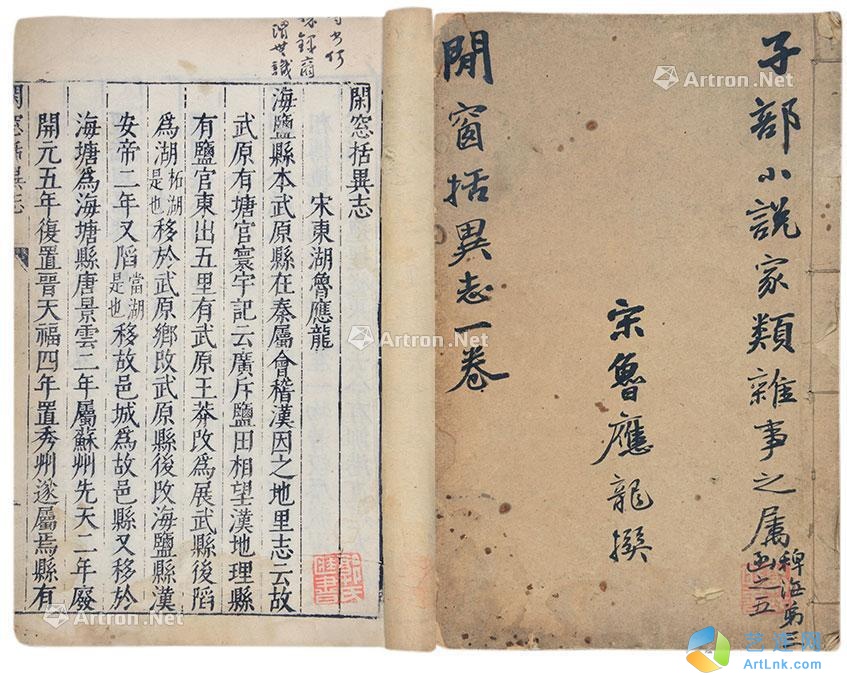 子部小說家類雜事之屬
稗海第三
函之五
宋魯應龍撰
閒窗括異志一卷
閑窓括異志
宋東湖魯應龍
海鹽縣本武原縣在秦屬會稽漢因之地里志云故
武原有塘官寰宇記云廣斥鹽田相望漢地理縣
有鹽官東出五里有武原王莽改爲展武縣後陷
爲湖柘湖是也移於武原鄉改武原縣後改海鹽縣漢
安帝二年又陷當湖是也移故邑城爲故邑縣又移於
海塘爲海塘縣唐景雲二年屬蘇州先天二年廢
開元五年復置晉天福四年置秀州遂屬焉縣有
閑窓括異志
Artron.Net
Artron.Net
Artron.Net
Artron.Net
Artron.Net
艺连网
ArtLnk.com